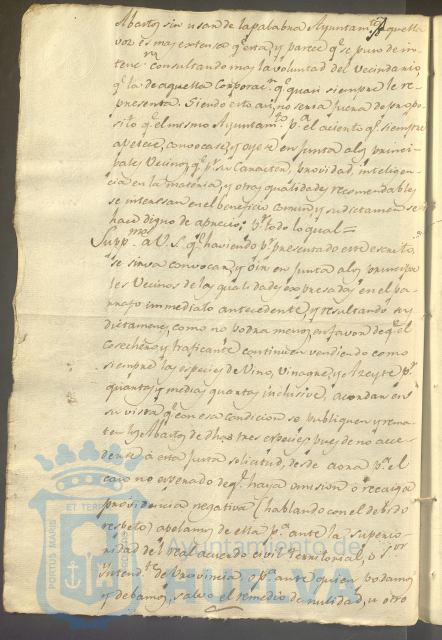 Abasto, sin usan de la palabra Ayuntam.to aquella
voz es mas extensa q.e esta, y parece q.e se puso de in-
ten.n consultando mas la voluntad del vecindario,
q.e la de aquella corporac.n q.e quasi siempre le re-
presenta. Siendo esto asi, no seria fuera de propo-
sito q.e el mismo Ayuntam.to p.a el acierto q.e siempre
apetece, convocase, y oyese en junta a los princi-
pales Vecinos q.e p.r su caracter, providad, inteligen-
cia en la materia, y otras qualidades recomendables
se interesan en el beneficio comun y su dictamen se
hace digno de aprecio; p.r todo lo qual =
Supp.mos a V.S. q.e haviendo p.r presentado este escrito
se sirva convocar, y oir en junta a los principa
les Vecinos de las qualidades expresadas en el pa-
rrafo inmediato antecedente, y resultando sus
dictamenes como no podra menos, en favor de q.e el
cosechero, y traficante continuen vendiendo como
siempre las especies de Vino, Vinagre, y Azeyte p.r
quartas y medias quartas inclusive, acordar en
su vista q.e con esa condicion se publiquen y rema-
ten los Abastos de dhas tres especies, pues de no acce-
derse à esta justa solicitud, desde aora p.a el
caso no esperado de q.e haya omision ò recaiga
providencia negativa (hablando con el debido
respeto) apelamos de ella p.a ante la Superio-
ridad del real acuerdo civil territorial, ò S.or
Yntend.te de Provincia, ò p.a ante quien podamos
y debamos, salvo el remedio de nulidad, u otro
PORTUS MARIS ET TERRAE
Ayuntamiento de
HUELVA